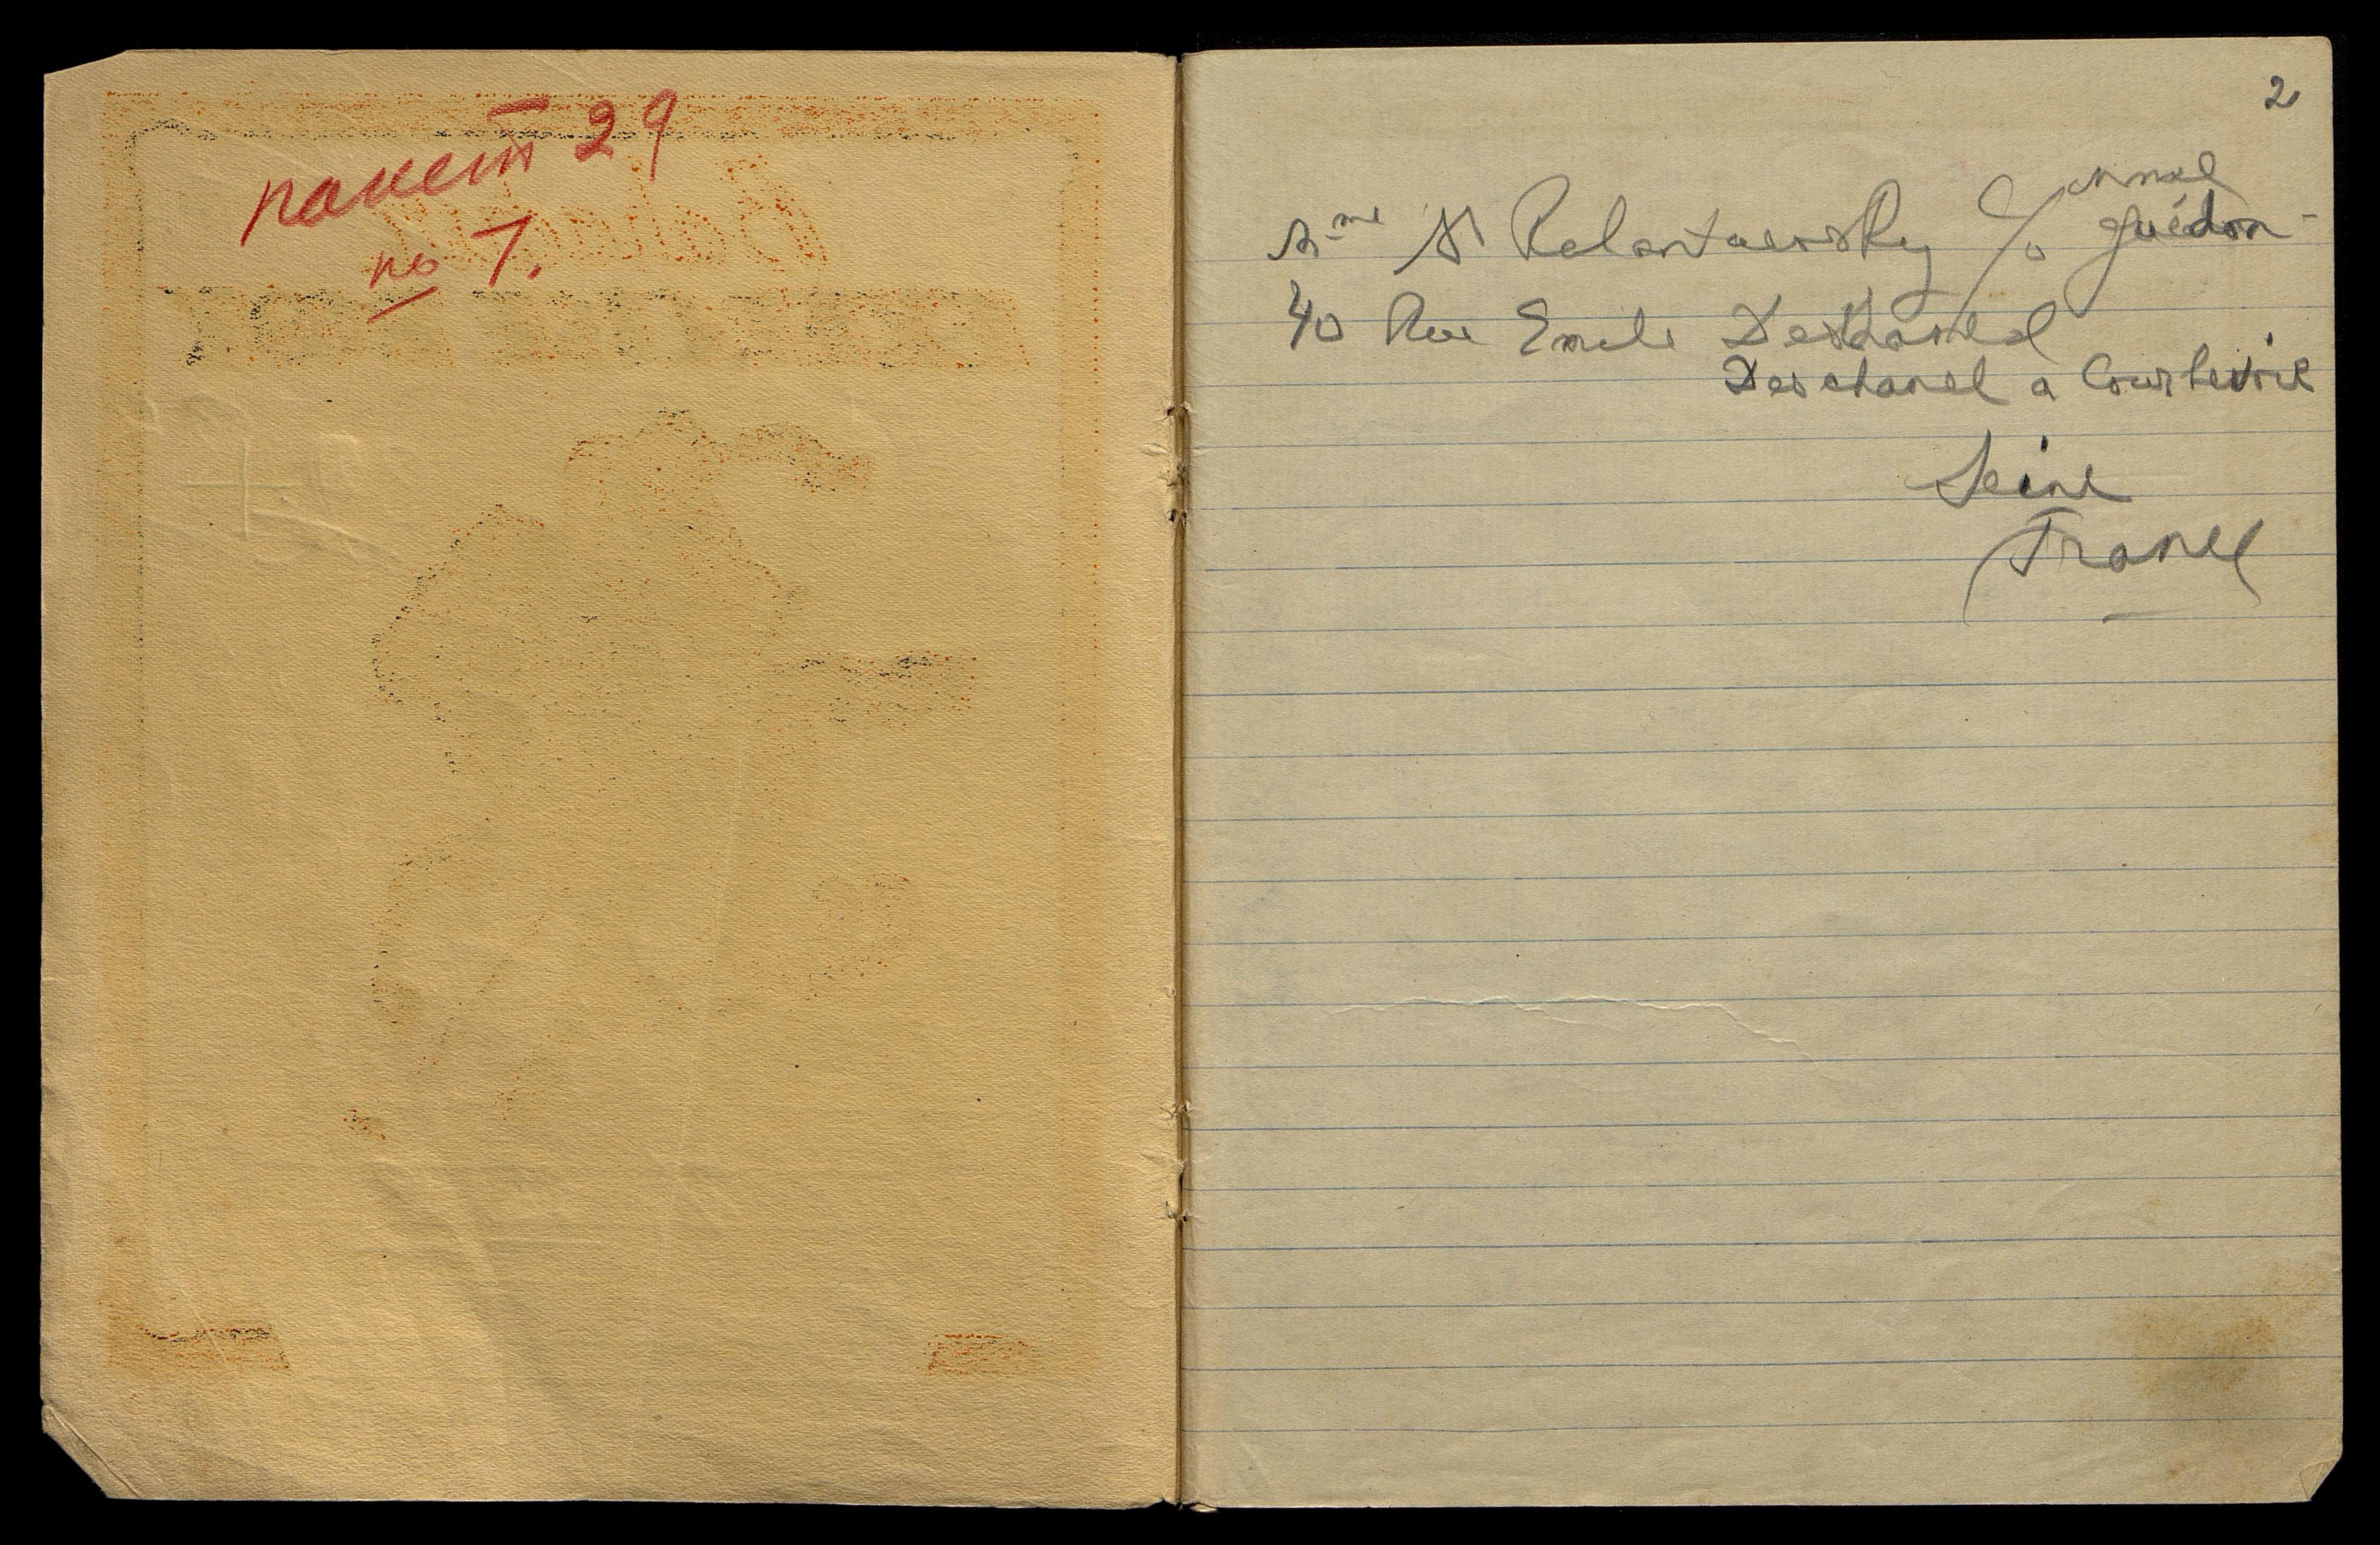 пакет 29
№ 7.
2
Mme
Mme c/o Guédon
40 Rue Emile Deschanel
Deschanel a Courbevoie
Seine
France